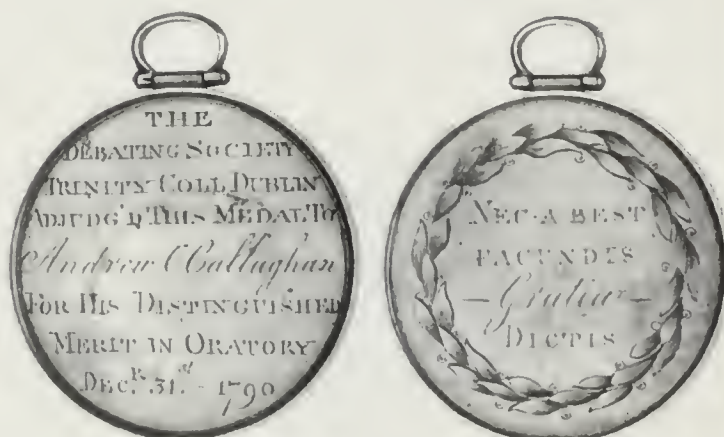 THE
DEBATING SOCIETY
TRINITY COLL DUBLIN
ADJUDG'D THIS MEDAL TO
Andrew O Callaghan
FOR HIS DISTINGUISHED
MERIT IN ORATORY
DECR. 31st - 1790
NEC ABEST
FACUNDIS
— Gratia —
DICTIS